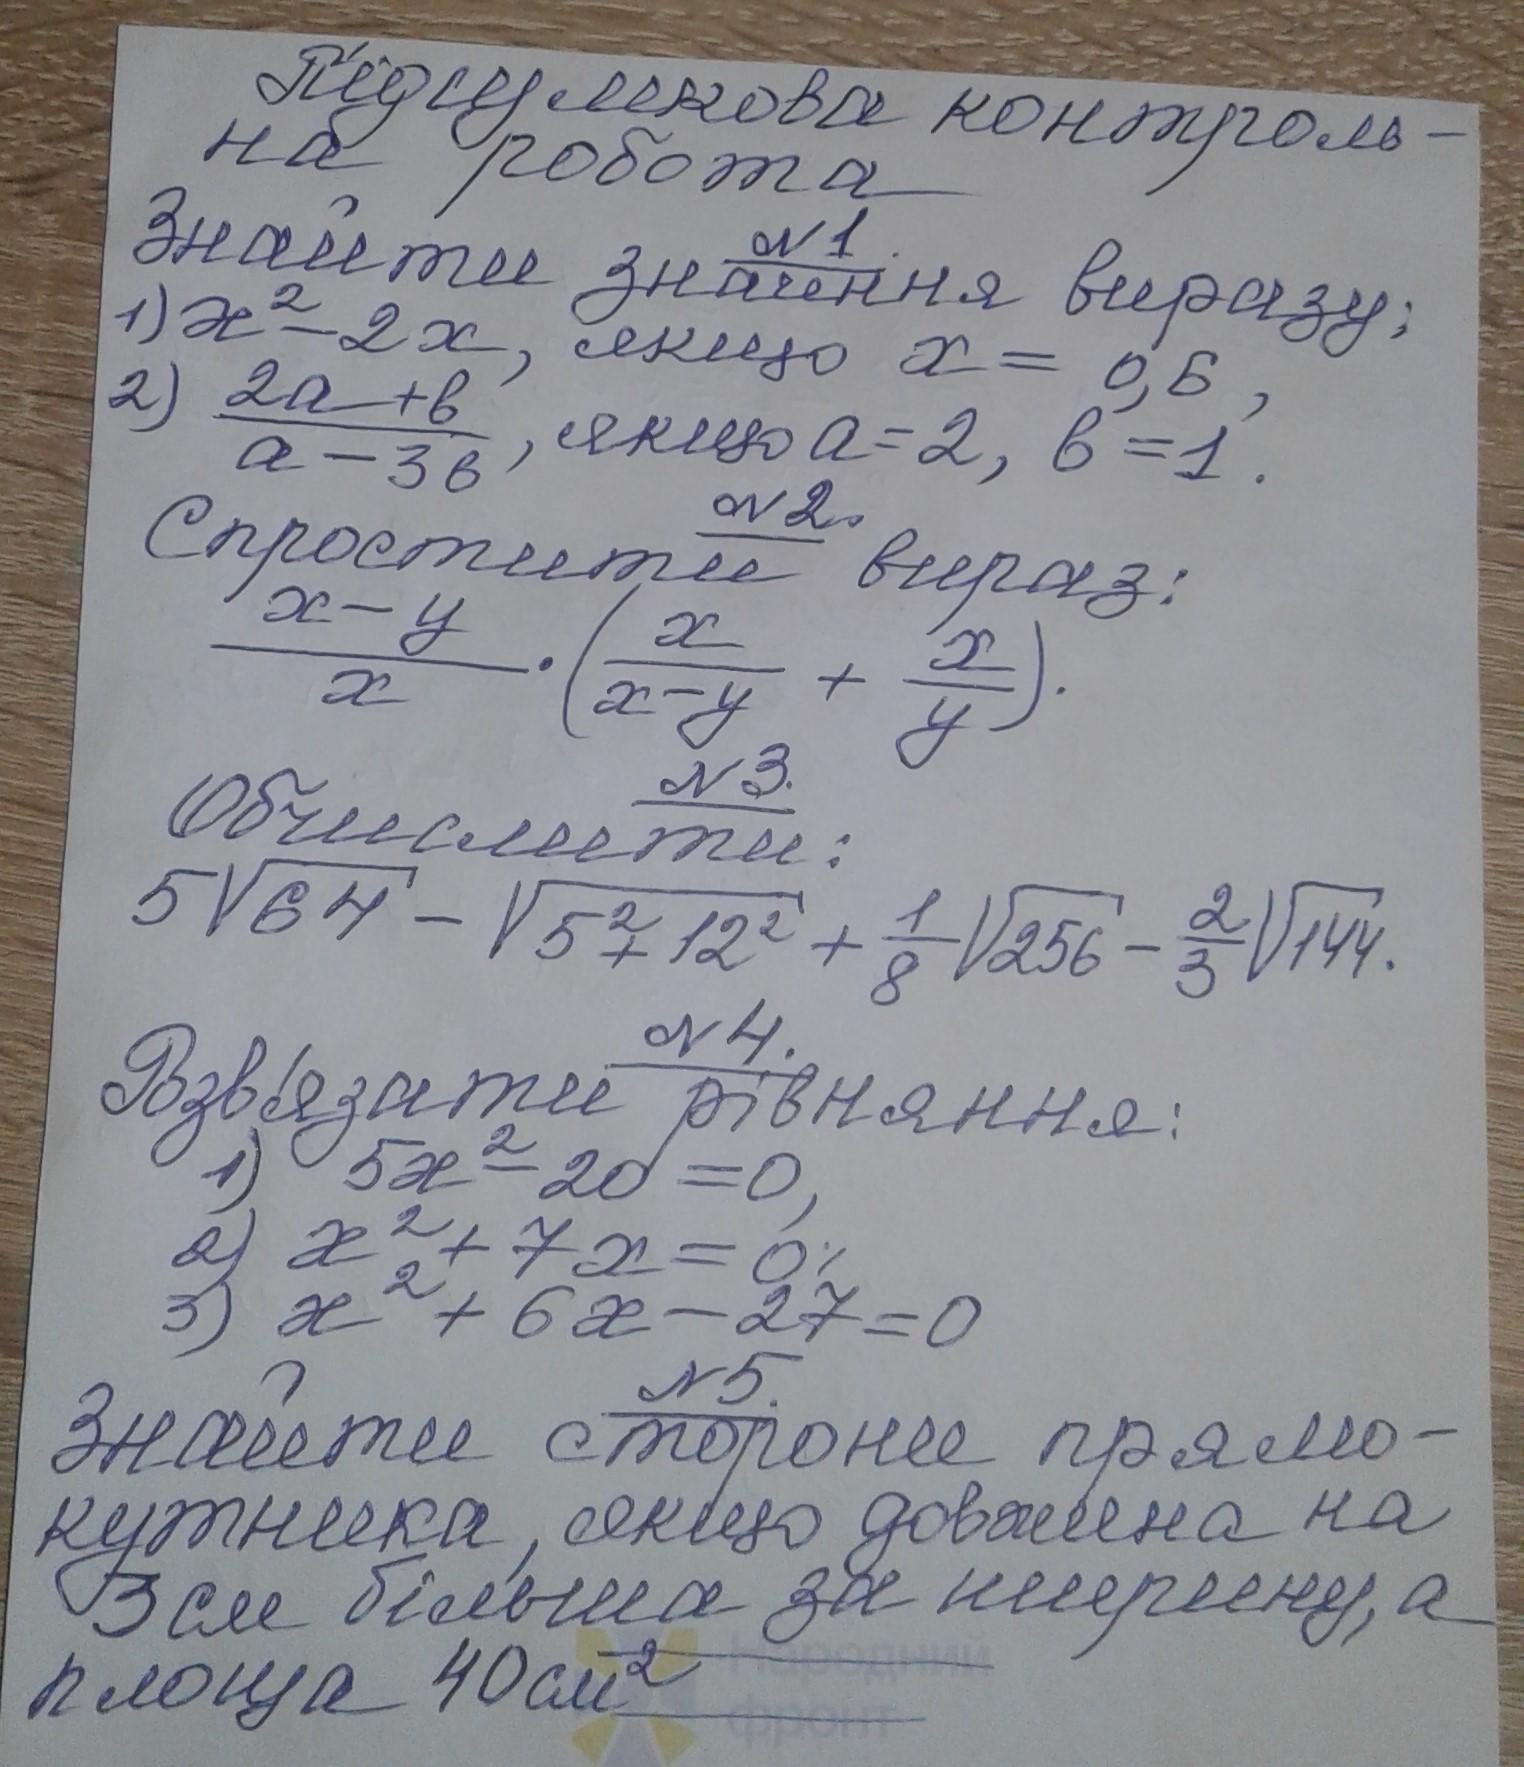 Підсумкова контроль-
на робота
№1.
Знайти значення виразу:
1) x² - 2x, якщо x = 0,6,
2) (2a + b)/(a - 3b), якщо a = 2, b = 1.
№2.
Спростити вираз:
(x - y)/x · (x/(x - y) + x/y).
№3.
Обчислити:
5√64 - √(5² + 12²) + 1/8 √256 - 2/3 √144.
№4.
Розв'язати рівняння:
1) 5x² - 20 = 0,
2) x² + 7x = 0;
3) x² + 6x - 27 = 0
№5.
Знайти сторони прямо-
кутника, якщо довжина на
3 см більша за ширину, а
площа 40 см²
Народний
фронт